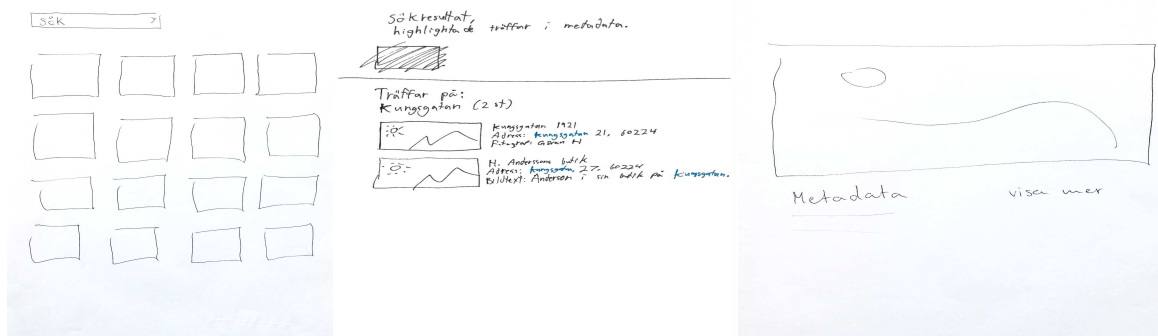 Sök >
Sökresultat,
highlightade träffar i metadata.
Träffar på:
Kungsgatan (2 st)
Kungsgatan 1921
Adress: Kungsgatan 21, 60224
Fotograf: Göran H
H. Anderssons butik
Adress: Kungsgatan 27, 60224
Bildtext: Anderson i sin butik på Kungsgatan.
Metadata
visa mer